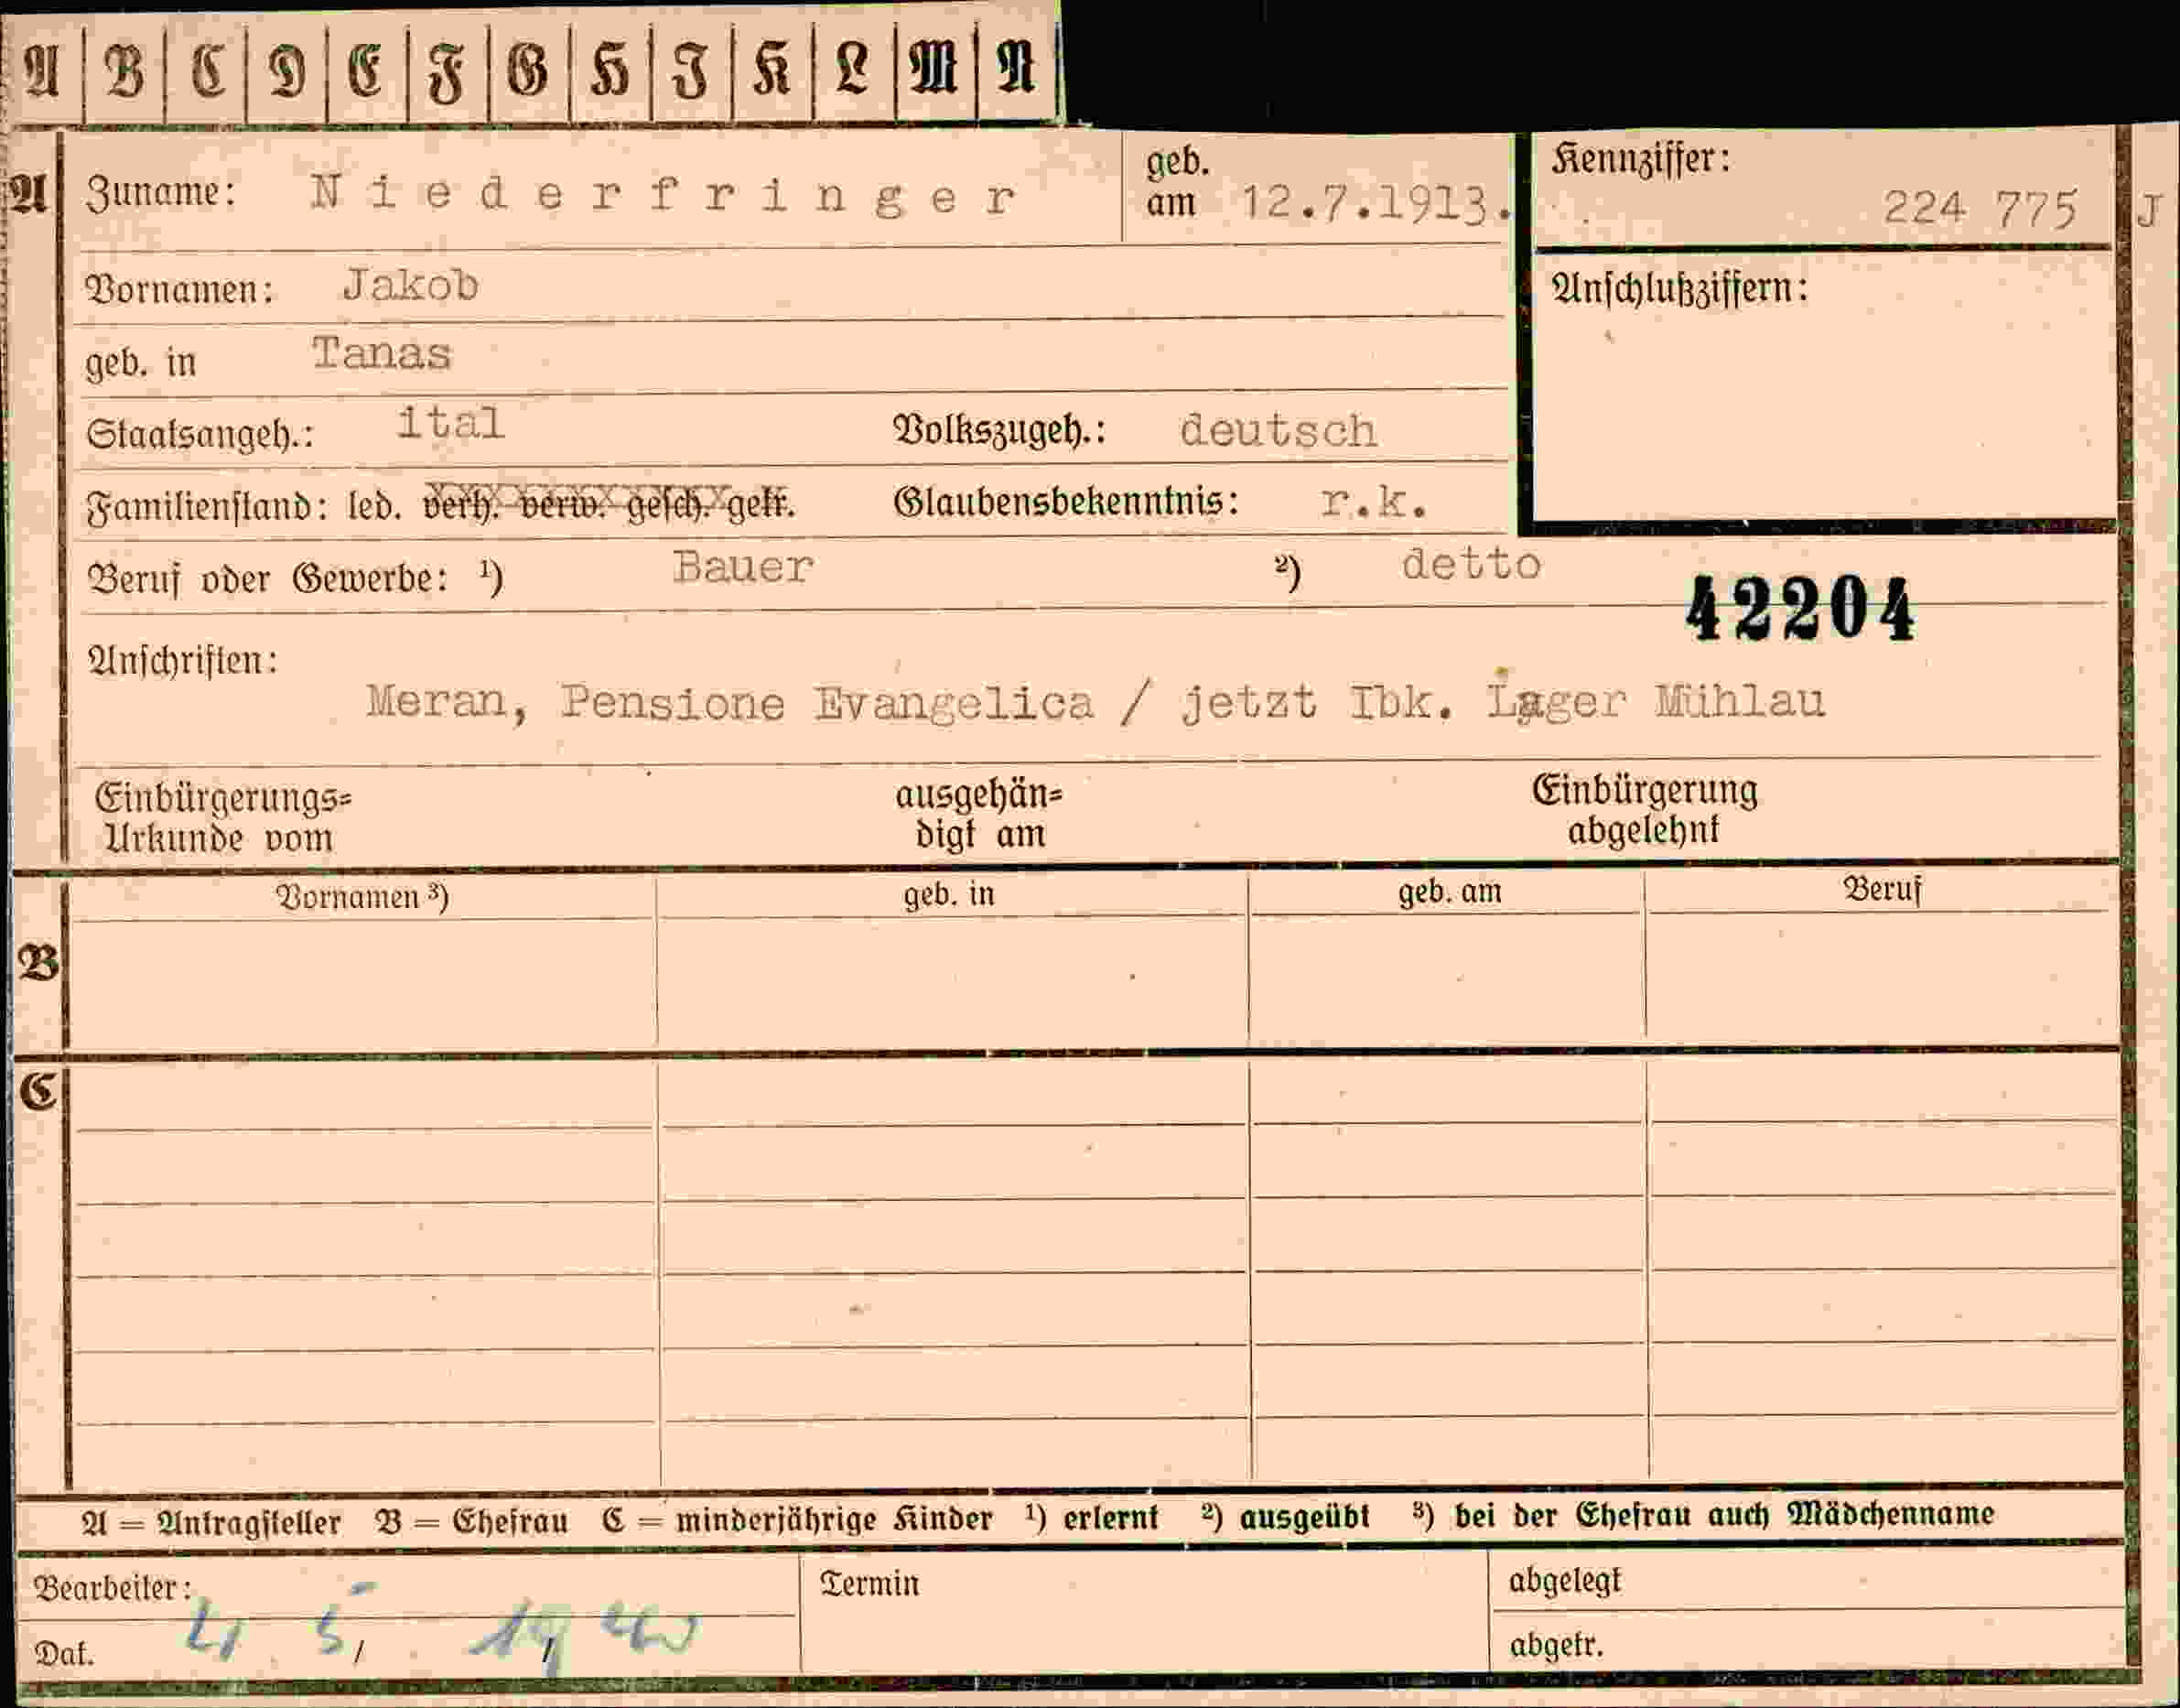 A B C D E F G H I K L M N
A Zuname: Niederfringer geb. am 12.7.1913. Kennziffer: 224 775 J
Vornamen: Jakob Anschlußziffern:
geb. in Tanas
Staatsangeh.: ital Volkszugeh.: deutsch
Familienstand: led. verh. verw. gesch. getr. Glaubensbekenntnis: r.k.
Beruf oder Gewerbe: ¹) Bauer ²) detto
42204
Anschriften:
Meran, Pensione Evangelica / jetzt Ibk. Lager Mühlau
Einbürgerungs= ausgehän= Einbürgerung
Urkunde vom digt am abgelehnt
Vornamen ³) geb. in geb. am Beruf
B
C
A = Antragsteller B = Ehefrau C = minderjährige Kinder ¹) erlernt ²) ausgeübt ³) bei der Ehefrau auch Mädchenname
Bearbeiter: Termin abgelegt
Dat. 4. 5. 1940 abgetr.